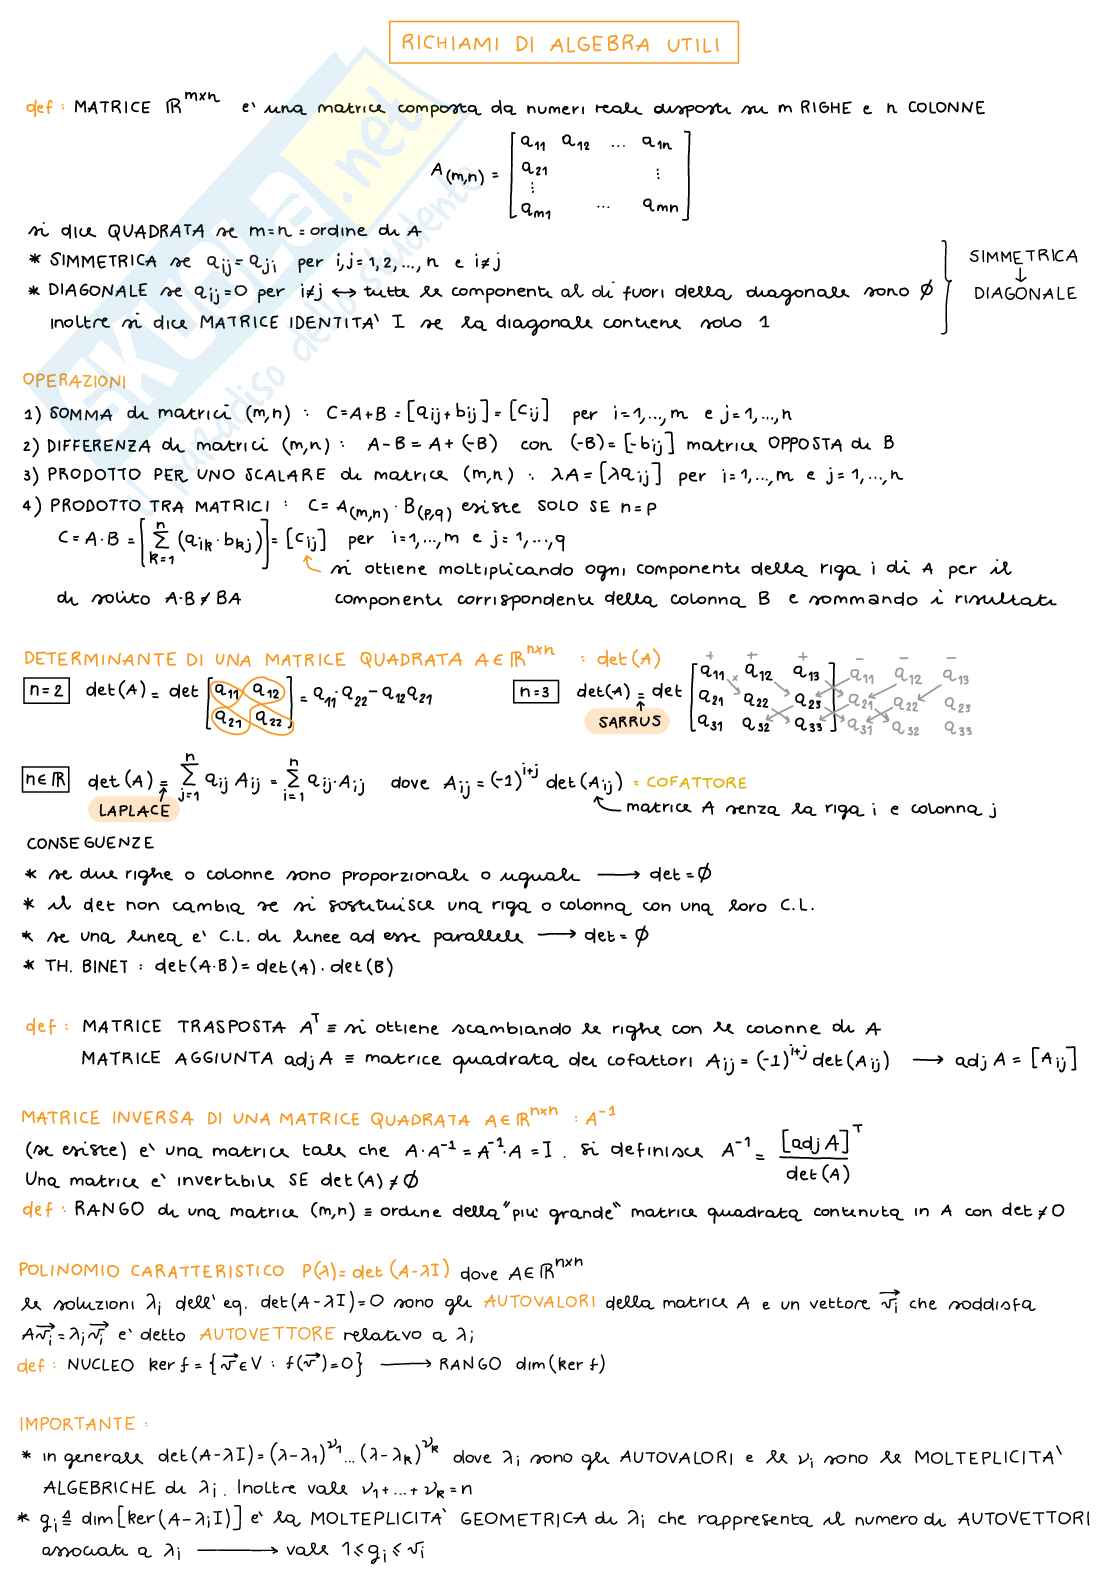 RICHIAMI DI ALGEBRA UTILI
def : MATRICE ℝ^{m×n} e' una matrice composta da numeri reali disposti su m RIGHE e n COLONNE
A_(m,n) = [a_11 a_12 ... a_1n
a_21 ⋮
⋮
a_m1 ... a_mn]
si dice QUADRATA se m=n = ordine di A
* SIMMETRICA se a_ij = a_ji per i,j = 1,2,...,n e i≠j
* DIAGONALE se a_ij = 0 per i≠j ↔ tutte le componenti al di fuori della diagonale sono ∅
inoltre si dice MATRICE IDENTITA' I se la diagonale contiene solo 1
} SIMMETRICA
↓
DIAGONALE
OPERAZIONI
1) SOMMA di matrici (m,n) : C=A+B = [a_ij + b_ij] = [c_ij] per i=1,...,m e j=1,...,n
2) DIFFERENZA di matrici (m,n) : A-B = A+(-B) con (-B) = [-b_ij] matrice OPPOSTA di B
3) PRODOTTO PER UNO SCALARE di matrice (m,n) : λA = [λa_ij] per i=1,...,m e j=1,...,n
4) PRODOTTO TRA MATRICI : C = A_(m,n) · B_(p,q) esiste SOLO SE n=p
C = A·B = [∑_{k=1}^{n} (a_ik · b_kj)] = [c_ij] per i=1,...,m e j=1,...,q
si ottiene moltiplicando ogni componente della riga i di A per il
di solito A·B ≠ BA componente corrispondente della colonna B e sommando i risultati
DETERMINANTE DI UNA MATRICE QUADRATA A∈ℝ^{n×n} : det(A)
n=2 det(A) = det [a_11 a_12
a_21 a_22] = a_11·a_22 - a_12a_21
n=3 det(A) = det
SARRUS
+ + + - - -
[a_11 a_12 a_13] a_11 a_12 a_13
[a_21 a_22 a_23] a_21 a_22 a_23
[a_31 a_32 a_33] a_31 a_32 a_33
n∈ℝ det(A) = ∑_{j=1}^{n} a_ij A_ij = ∑_{i=1}^{n} a_ij · A_ij dove A_ij = (-1)^{i+j} det(A_ij) = COFATTORE
LAPLACE
matrice A senza la riga i e colonna j
CONSEGUENZE
* se due righe o colonne sono proporzionali o uguali → det = ∅
* il det non cambia se si sostituisce una riga o colonna con una loro C.L.
* se una linea e' C.L. di linee ad esse parallele → det = ∅
* TH. BINET : det(A·B) = det(A) · det(B)
def : MATRICE TRASPOSTA A^T ≡ si ottiene scambiando le righe con le colonne di A
MATRICE AGGIUNTA adj A ≡ matrice quadrata dei cofattori A_ij = (-1)^{i+j} det(A_ij) → adj A = [A_ij]
MATRICE INVERSA DI UNA MATRICE QUADRATA A∈ℝ^{n×n} : A^{-1}
(se esiste) e' una matrice tale che A·A^{-1} = A^{-1}·A = I . Si definisce A^{-1} = [adj A]^T / det(A)
Una matrice e' invertibile SE det(A) ≠ ∅
def : RANGO di una matrice (m,n) ≡ ordine della "piu' grande" matrice quadrata contenuta in A con det ≠ 0
POLINOMIO CARATTERISTICO P(λ) = det(A-λI) dove A∈ℝ^{n×n}
le soluzioni λ_i dell'eq. det(A-λI)=0 sono gli AUTOVALORI della matrice A e un vettore v⃗_i che soddisfa
Av⃗_i = λ_i v⃗_i e' detto AUTOVETTORE relativo a λ_i
def : NUCLEO ker f = {v⃗∈V : f(v⃗)=0} → RANGO dim(ker f)
IMPORTANTE :
* in generale det(A-λI) = (λ-λ_1)^{ν_1} ... (λ-λ_k)^{ν_k} dove λ_i sono gli AUTOVALORI e le ν_i sono le MOLTEPLICITA'
ALGEBRICHE di λ_i. Inoltre vale ν_1+...+ν_k = n
* g_i ≜ dim[ker(A-λ_iI)] e' la MOLTEPLICITA' GEOMETRICA di λ_i che rappresenta il numero di AUTOVETTORI
associati a λ_i → vale 1 ≤ g_i ≤ v_i
SKUOLA.net
il paradiso dello studente